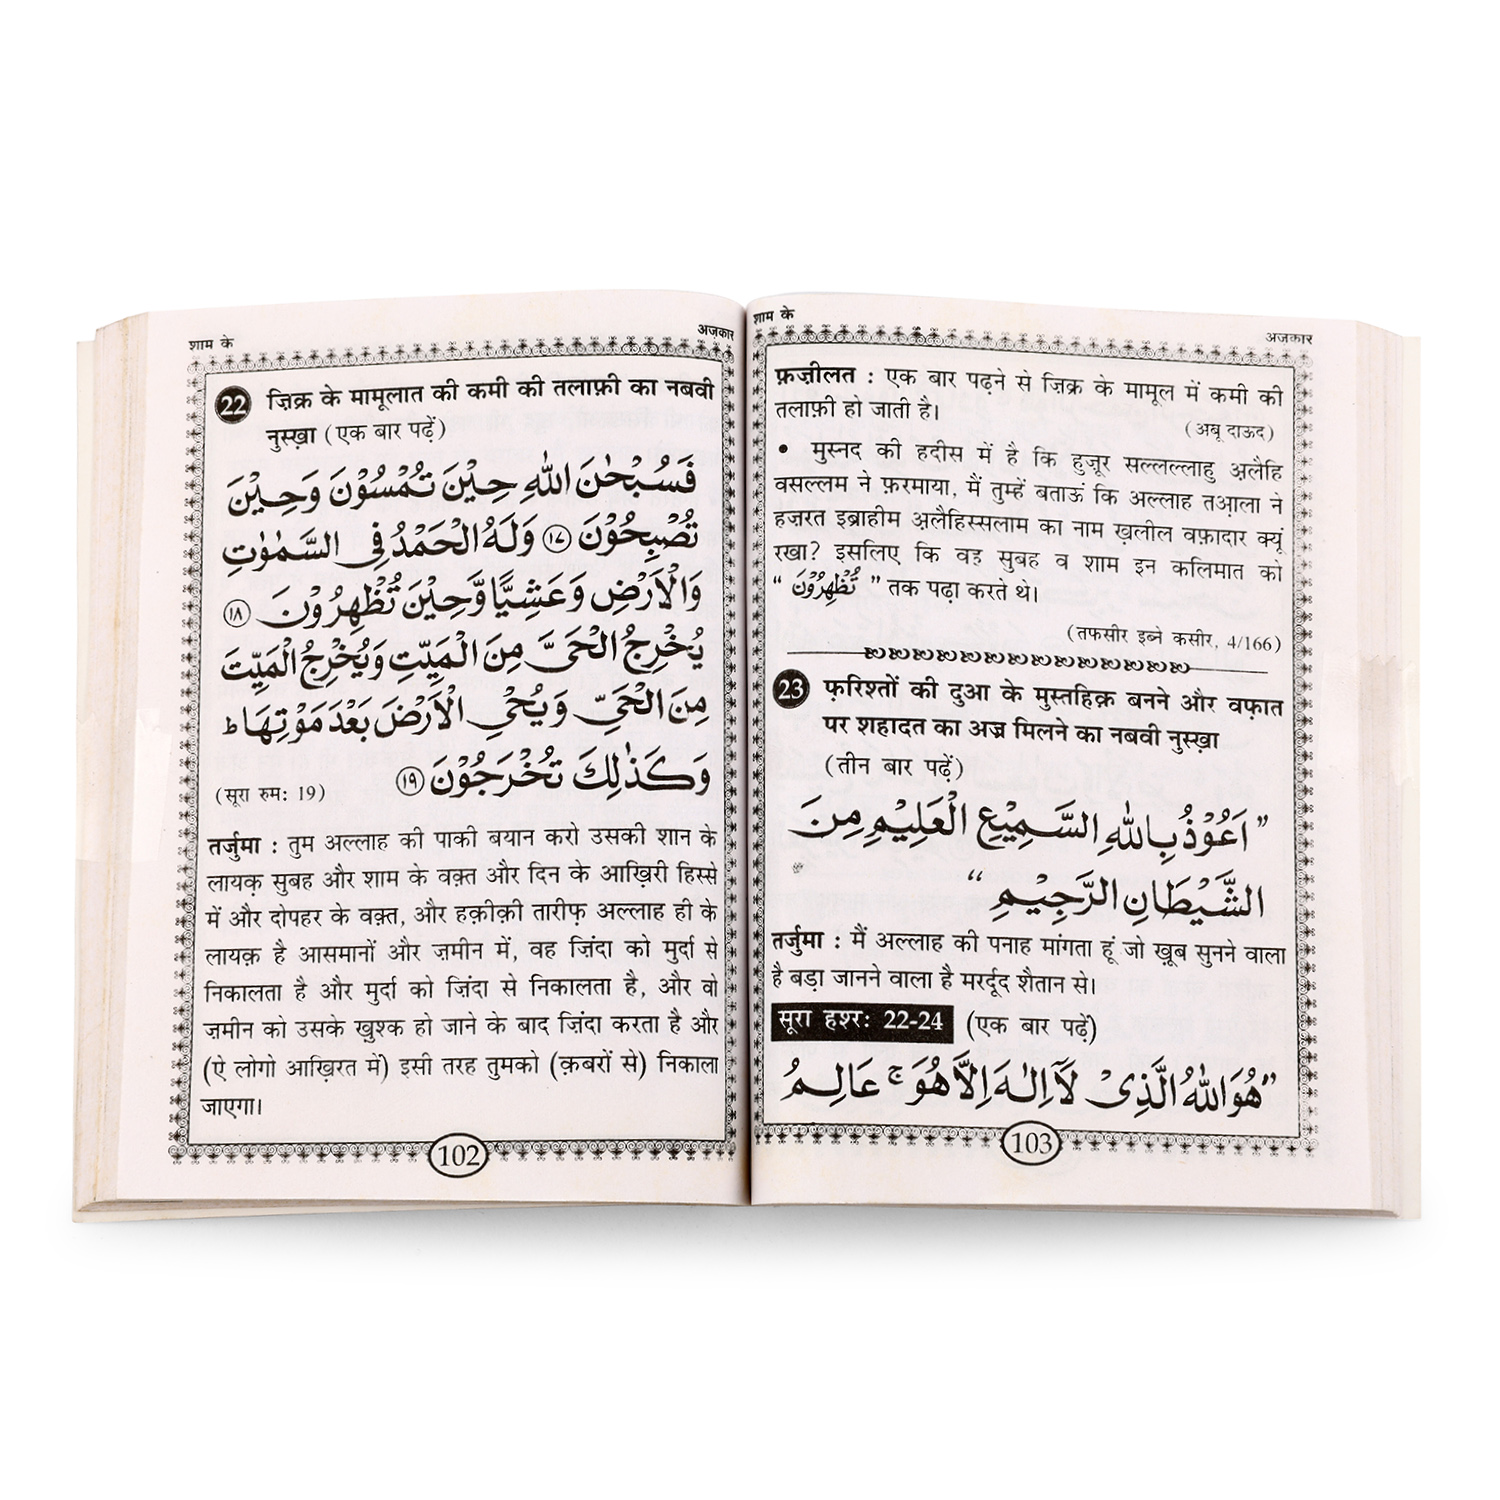 शाम के अज़कार
22 ज़िक्र के मामूलात की कमी की तलाफ़ी का नबवी
नुस्ख़ा (एक बार पढ़ें)
فَسُبْحٰنَ اللهِ حِيْنَ تُمْسُوْنَ وَحِيْنَ
تُصْبِحُوْنَ ⑰ وَلَهُ الْحَمْدُ فِي السَّمٰوٰتِ
وَالْاَرْضِ وَعَشِيًّا وَّحِيْنَ تُظْهِرُوْنَ ⑱
يُخْرِجُ الْحَيَّ مِنَ الْمَيِّتِ وَيُخْرِجُ الْمَيِّتَ
مِنَ الْحَيِّ وَيُحْيِ الْاَرْضَ بَعْدَ مَوْتِهَا ط
وَكَذٰلِكَ تُخْرَجُوْنَ ⑲
(सूरा रुम: 19)
तर्जुमा : तुम अल्लाह की पाकी बयान करो उसकी शान के
लायक़ सुबह और शाम के वक़्त और दिन के आख़िरी हिस्से
में और दोपहर के वक़्त, और हक़ीक़ी तारीफ़ अल्लाह ही के
लायक़ है आसमानों और ज़मीन में, वह ज़िंदा को मुर्दा से
निकालता है और मुर्दा को ज़िंदा से निकालता है, और वो
ज़मीन को उसके खुश्क हो जाने के बाद ज़िंदा करता है और
(ऐ लोगो आख़िरत में) इसी तरह तुमको (क़बरों से) निकाला
जाएगा।
102
शाम के अज़कार
फ़ज़ीलत : एक बार पढ़ने से ज़िक्र के मामूल में कमी की
तलाफ़ी हो जाती है।
(अबू दाऊद)
• मुस्नद की हदीस में है कि हुज़ूर सल्लल्लाहु अ़लैहि
वसल्लम ने फ़रमाया, मैं तुम्हें बताऊं कि अल्लाह तआ़ला ने
हज़रत इब्राहीम अ़लैहिस्सलाम का नाम ख़लील वफ़ादार क्यूं
रखा? इसलिए कि वह सुबह व शाम इन कलिमात को
“ تُظْهِرُوْنَ ” तक पढ़ा करते थे।
(तफसीर इब्ने कसीर, 4/166)
23 फ़रिश्तों की दुआ के मुस्तहिक़ बनने और वफ़ात
पर शहादत का अज्र मिलने का नबवी नुस्ख़ा
(तीन बार पढ़ें)
”اَعُوْذُ بِاللهِ السَّمِيْعِ الْعَلِيْمِ مِنَ
الشَّيْطَانِ الرَّجِيْمِ“
तर्जुमा : मैं अल्लाह की पनाह मांगता हूं जो ख़ूब सुनने वाला
है बड़ा जानने वाला है मरर्दूद शैतान से।
सूरा हश्र: 22-24 (एक बार पढ़ें)
”هُوَ اللهُ الَّذِيْ لَآ اِلٰهَ اِلَّا هُوَ ج عَالِمُ
103